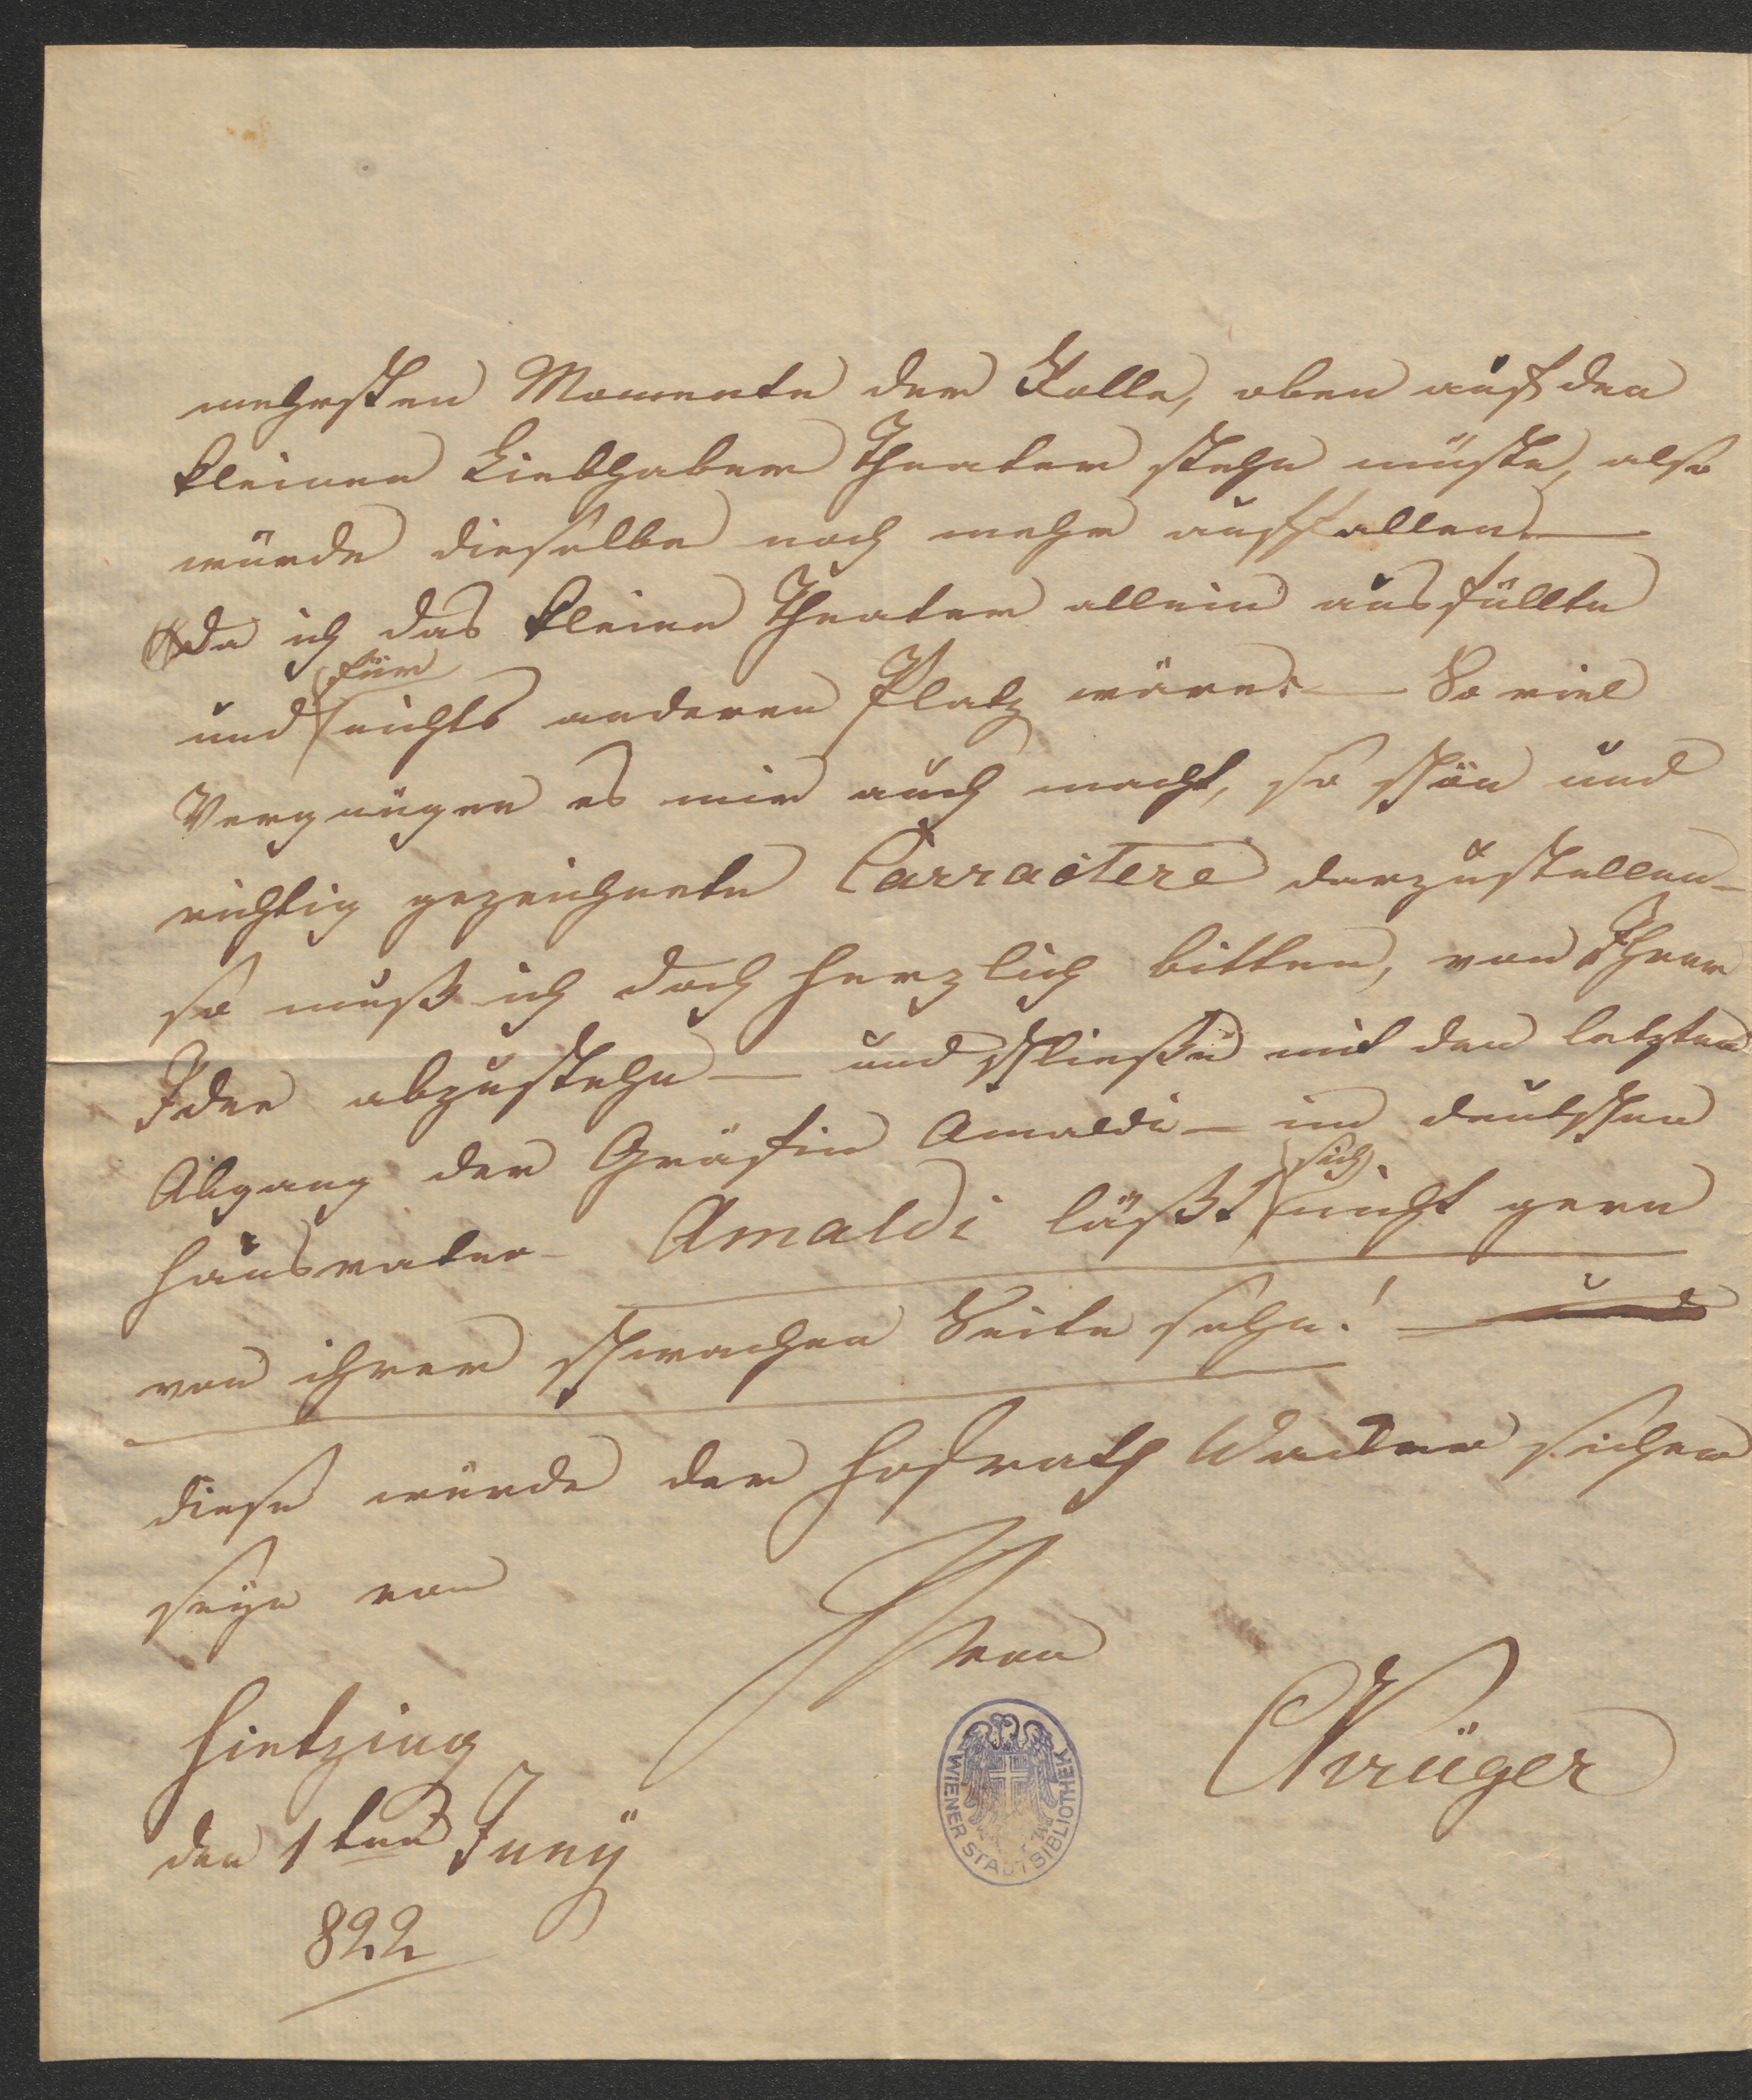 mehrsten Momente der Rolle, oben auf den
kleinen Liebhaber Theater stehn müste, also
würde dieselbe noch mehr auffallen. —
da ich das kleine Theater allein ausfüllte
und für nichts anderen Platz wäre. — So viel
Vergnügen es mir auch macht, so schön und
richtig gezeichnete Carractere darzustellen —
so muß ich doch herzlich bitten, von Ihrer
Idee abzustehn — und schließe mit den letzten
Abgang der Gräfin Amaldi — im deutschen
Hausvater — Amaldi läßt sich nicht gern
von ihrer schwachen Seite sehn! — und
diese würde der Hofrath sicher
seyn von
Ihrer
Krüger
Hietzing
den 1ten Juny
822
WIENER STADTBIBLIOTHEK